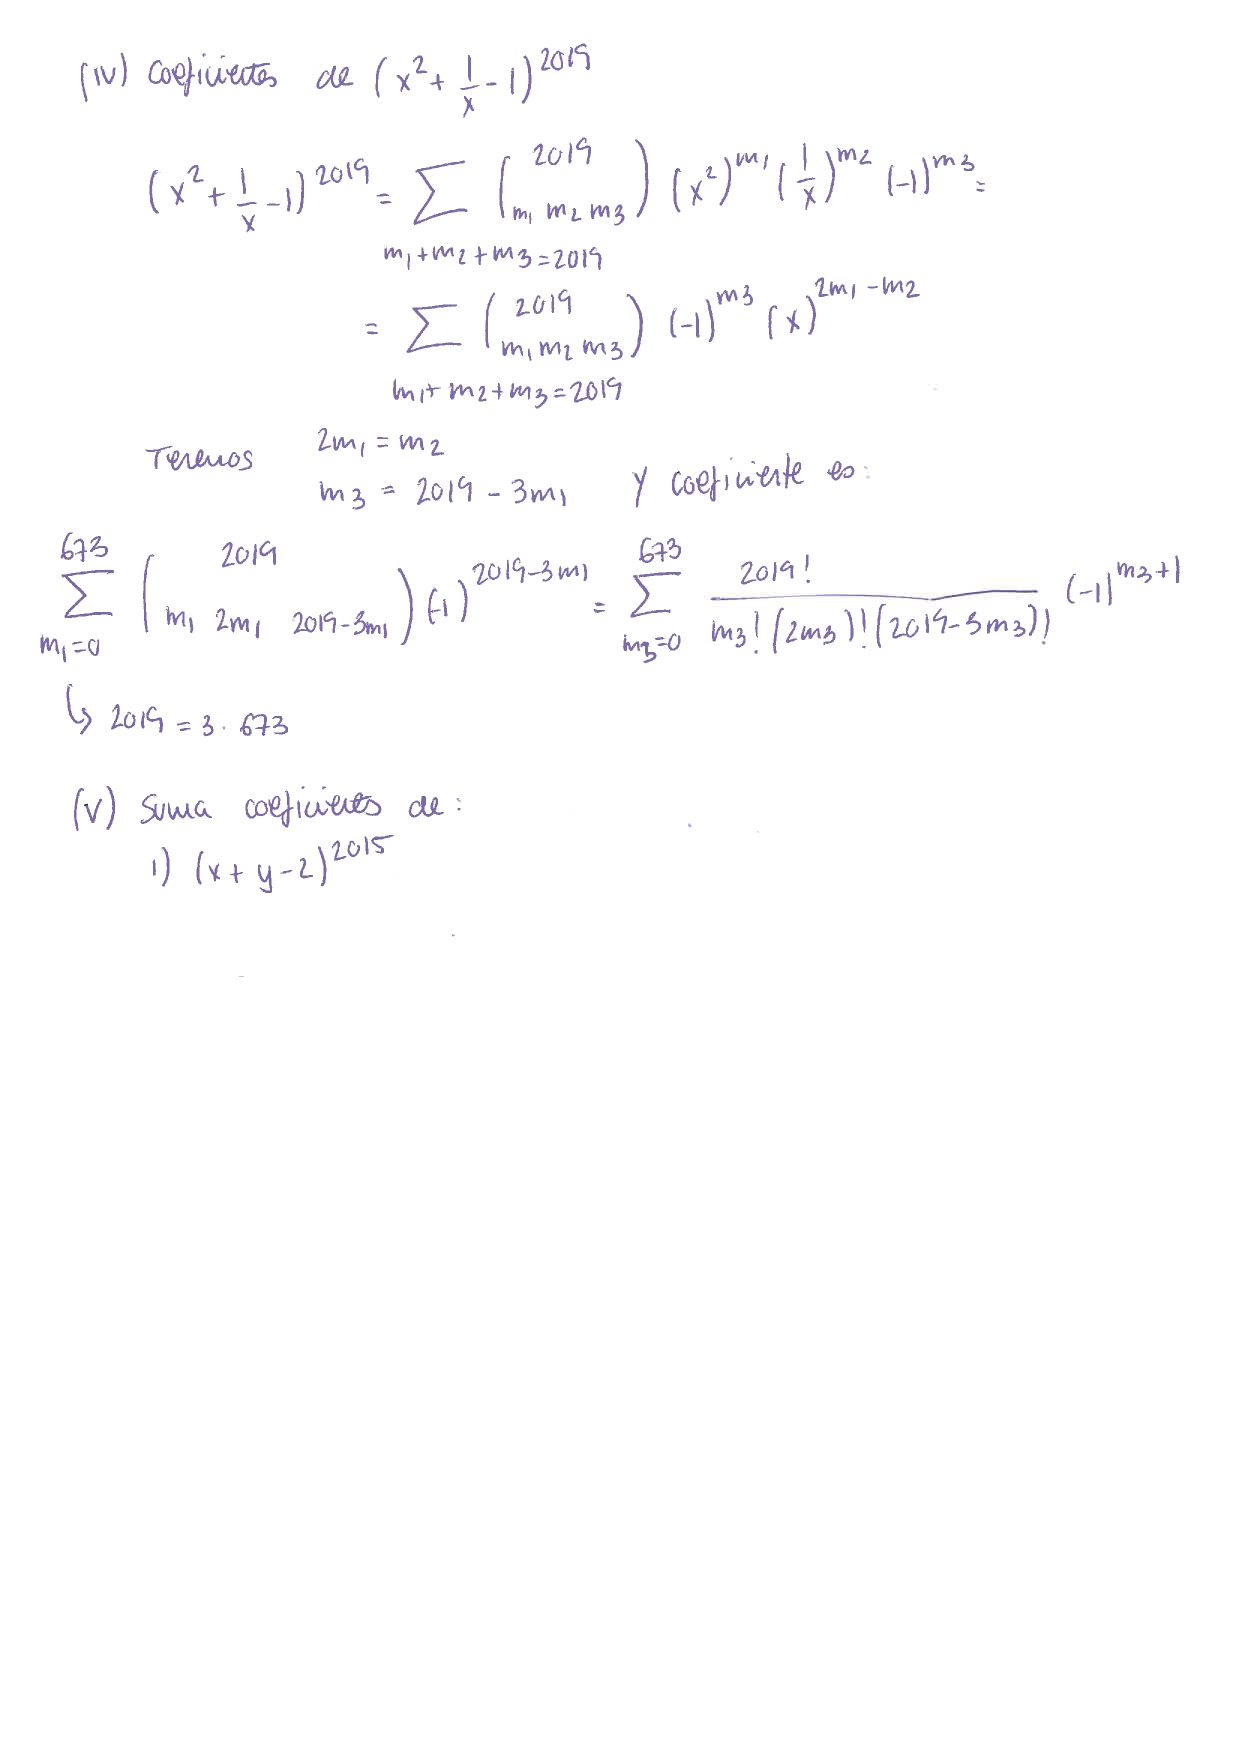 (IV) Coeficientes de (x² + 1/x - 1)^2019
(x² + 1/x - 1)^2019 = ∑_{m₁+m₂+m₃=2019} (2019 / m₁ m₂ m₃) (x²)^m₁ (1/x)^m₂ (-1)^m₃ =
= ∑_{m₁+m₂+m₃=2019} (2019 / m₁ m₂ m₃) (-1)^m₃ (x)^{2m₁-m₂}
Tenemos 2m₁ = m₂
m₃ = 2019 - 3m₁ Y coeficiente es:
∑_{m₁=0}^{673} (2019 / m₁ 2m₁ 2019-3m₁) (-1)^{2019-3m₁} = ∑_{m₃=0}^{673} 2019! / m₃! (2m₃)! (2019-3m₃)! (-1)^{m₃+1}
↳ 2019 = 3 · 673
(V) Suma coeficientes de:
1) (x + y - 2)^2015